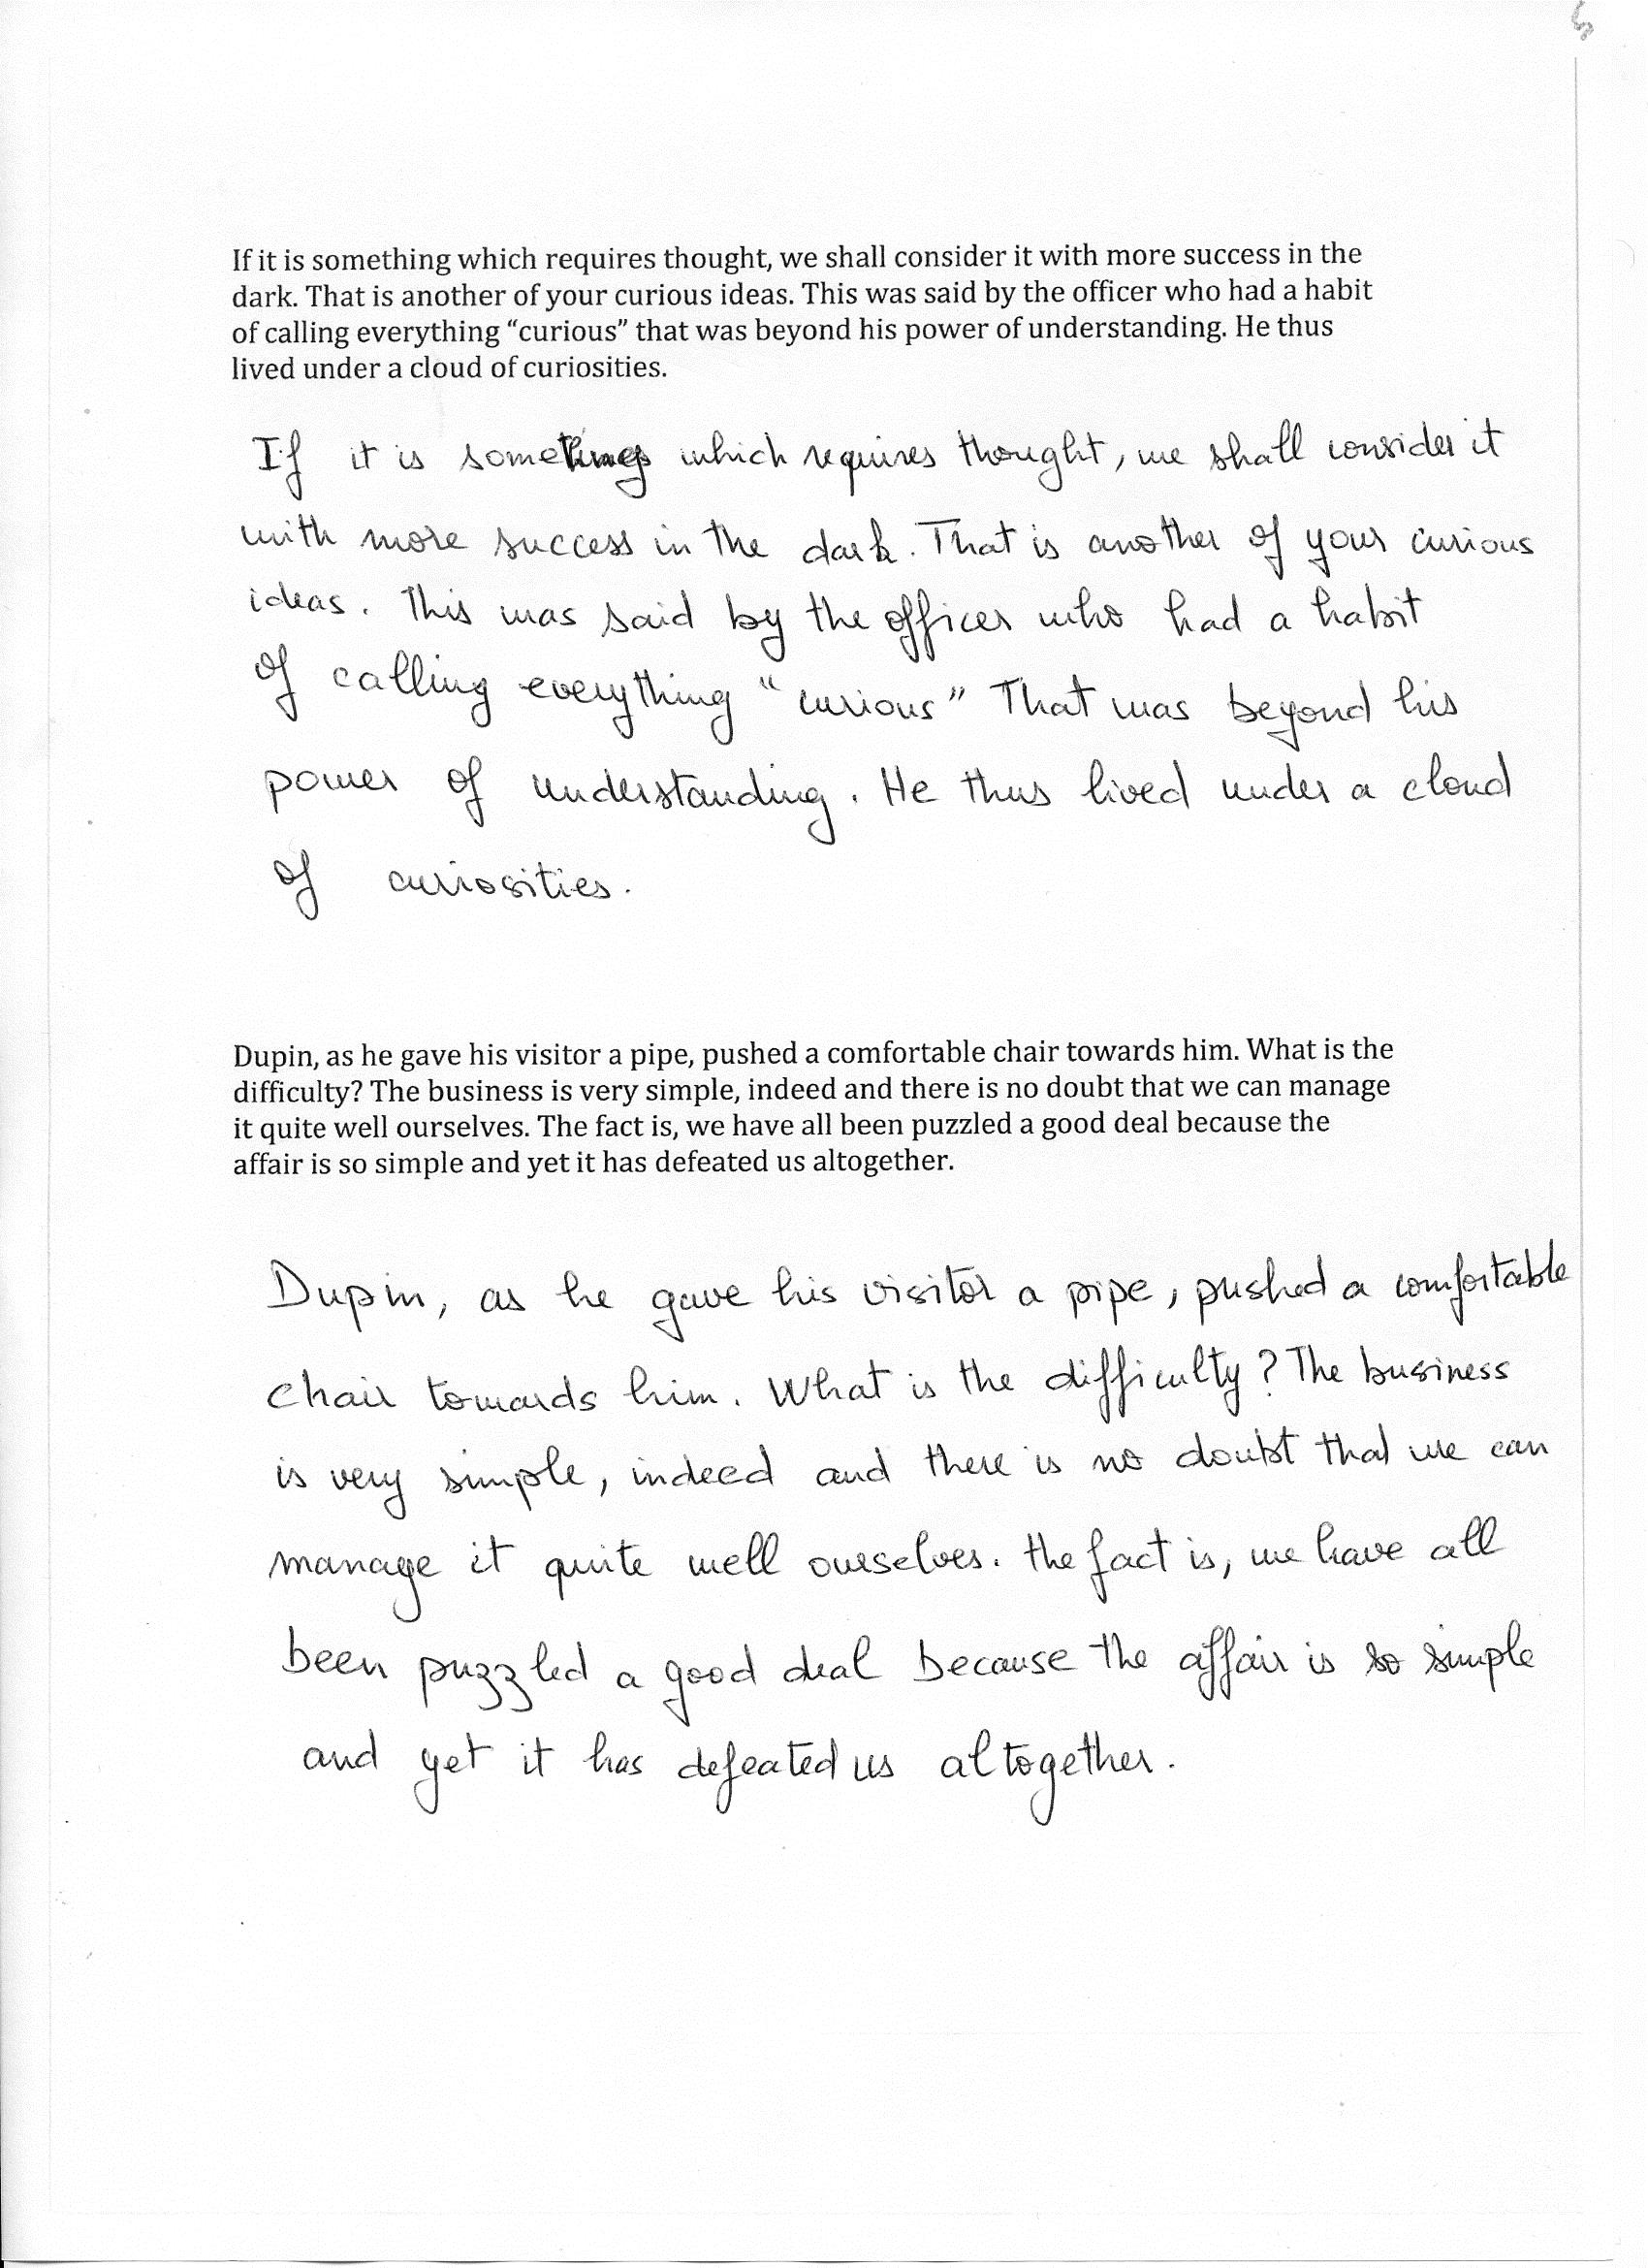 If it is something which requires thought, we shall consider it with more success in the
dark. That is another of your curious ideas. This was said by the officer who had a habit
of calling everything “curious” that was beyond his power of understanding. He thus
lived under a cloud of curiosities.
If it is something which requires thought, we shall consider it
with more success in the dark. That is another of your curious
ideas. This was said by the officer who had a habit
of calling everything “curious” That was beyond his
power of understanding. He thus lived under a cloud
of curiosities.
Dupin, as he gave his visitor a pipe, pushed a comfortable chair towards him. What is the
difficulty? The business is very simple, indeed and there is no doubt that we can manage
it quite well ourselves. The fact is, we have all been puzzled a good deal because the
affair is so simple and yet it has defeated us altogether.
Dupin, as he gave his visitor a pipe, pushed a comfortable
chair towards him. What is the difficulty? The business
is very simple, indeed and there is no doubt that we can
manage it quite well ourselves. the fact is, we have all
been puzzled a good deal because the affair is so simple
and yet it has defeated us altogether.